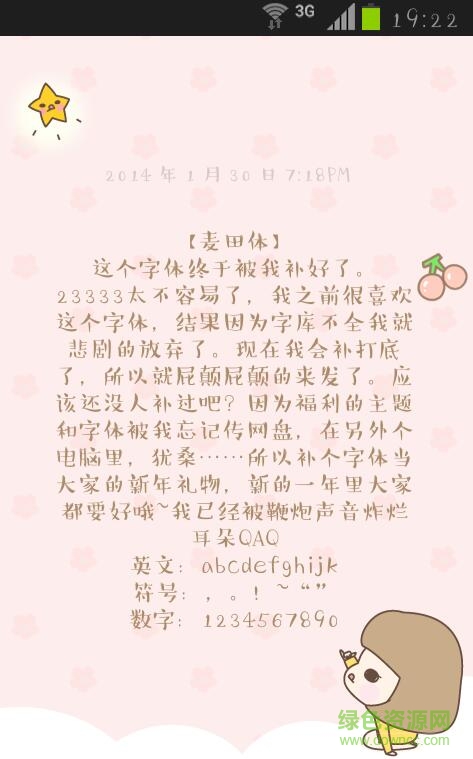 3G 19:22
2014年1月30日 7:18PM
【麦田体】
这个字体终于被我补好了。
23333太不容易了，我之前很喜欢
这个字体，结果因为字库不全我就
悲剧的放弃了。现在我会补打底
了，所以就屁颠屁颠的来发了。应
该还没人补过吧？因为福利的主题
和字体被我忘记传网盘，在另外个
电脑里，犹桑……所以补个字体当
大家的新年礼物，新的一年里大家
都要好哦~我已经被鞭炮声音炸烂
耳朵QAQ
英文：abcdefghijk
符号：，。！~“”
数字：1234567890
绿色资源网
www.downcc.com